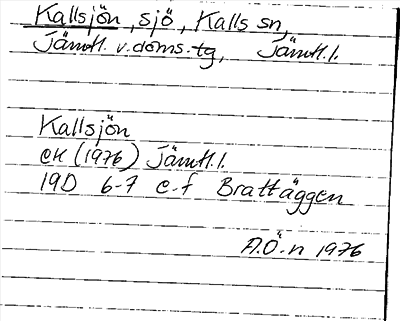 Kallsjön, sjö, Kalls sn,
Jämtl. v. doms. tg, Jämtl. l.
Kallsjön
ek (1976) Jämtl. l.
19D 6-7 e-f Brattäggen
A.Ö-n 1976